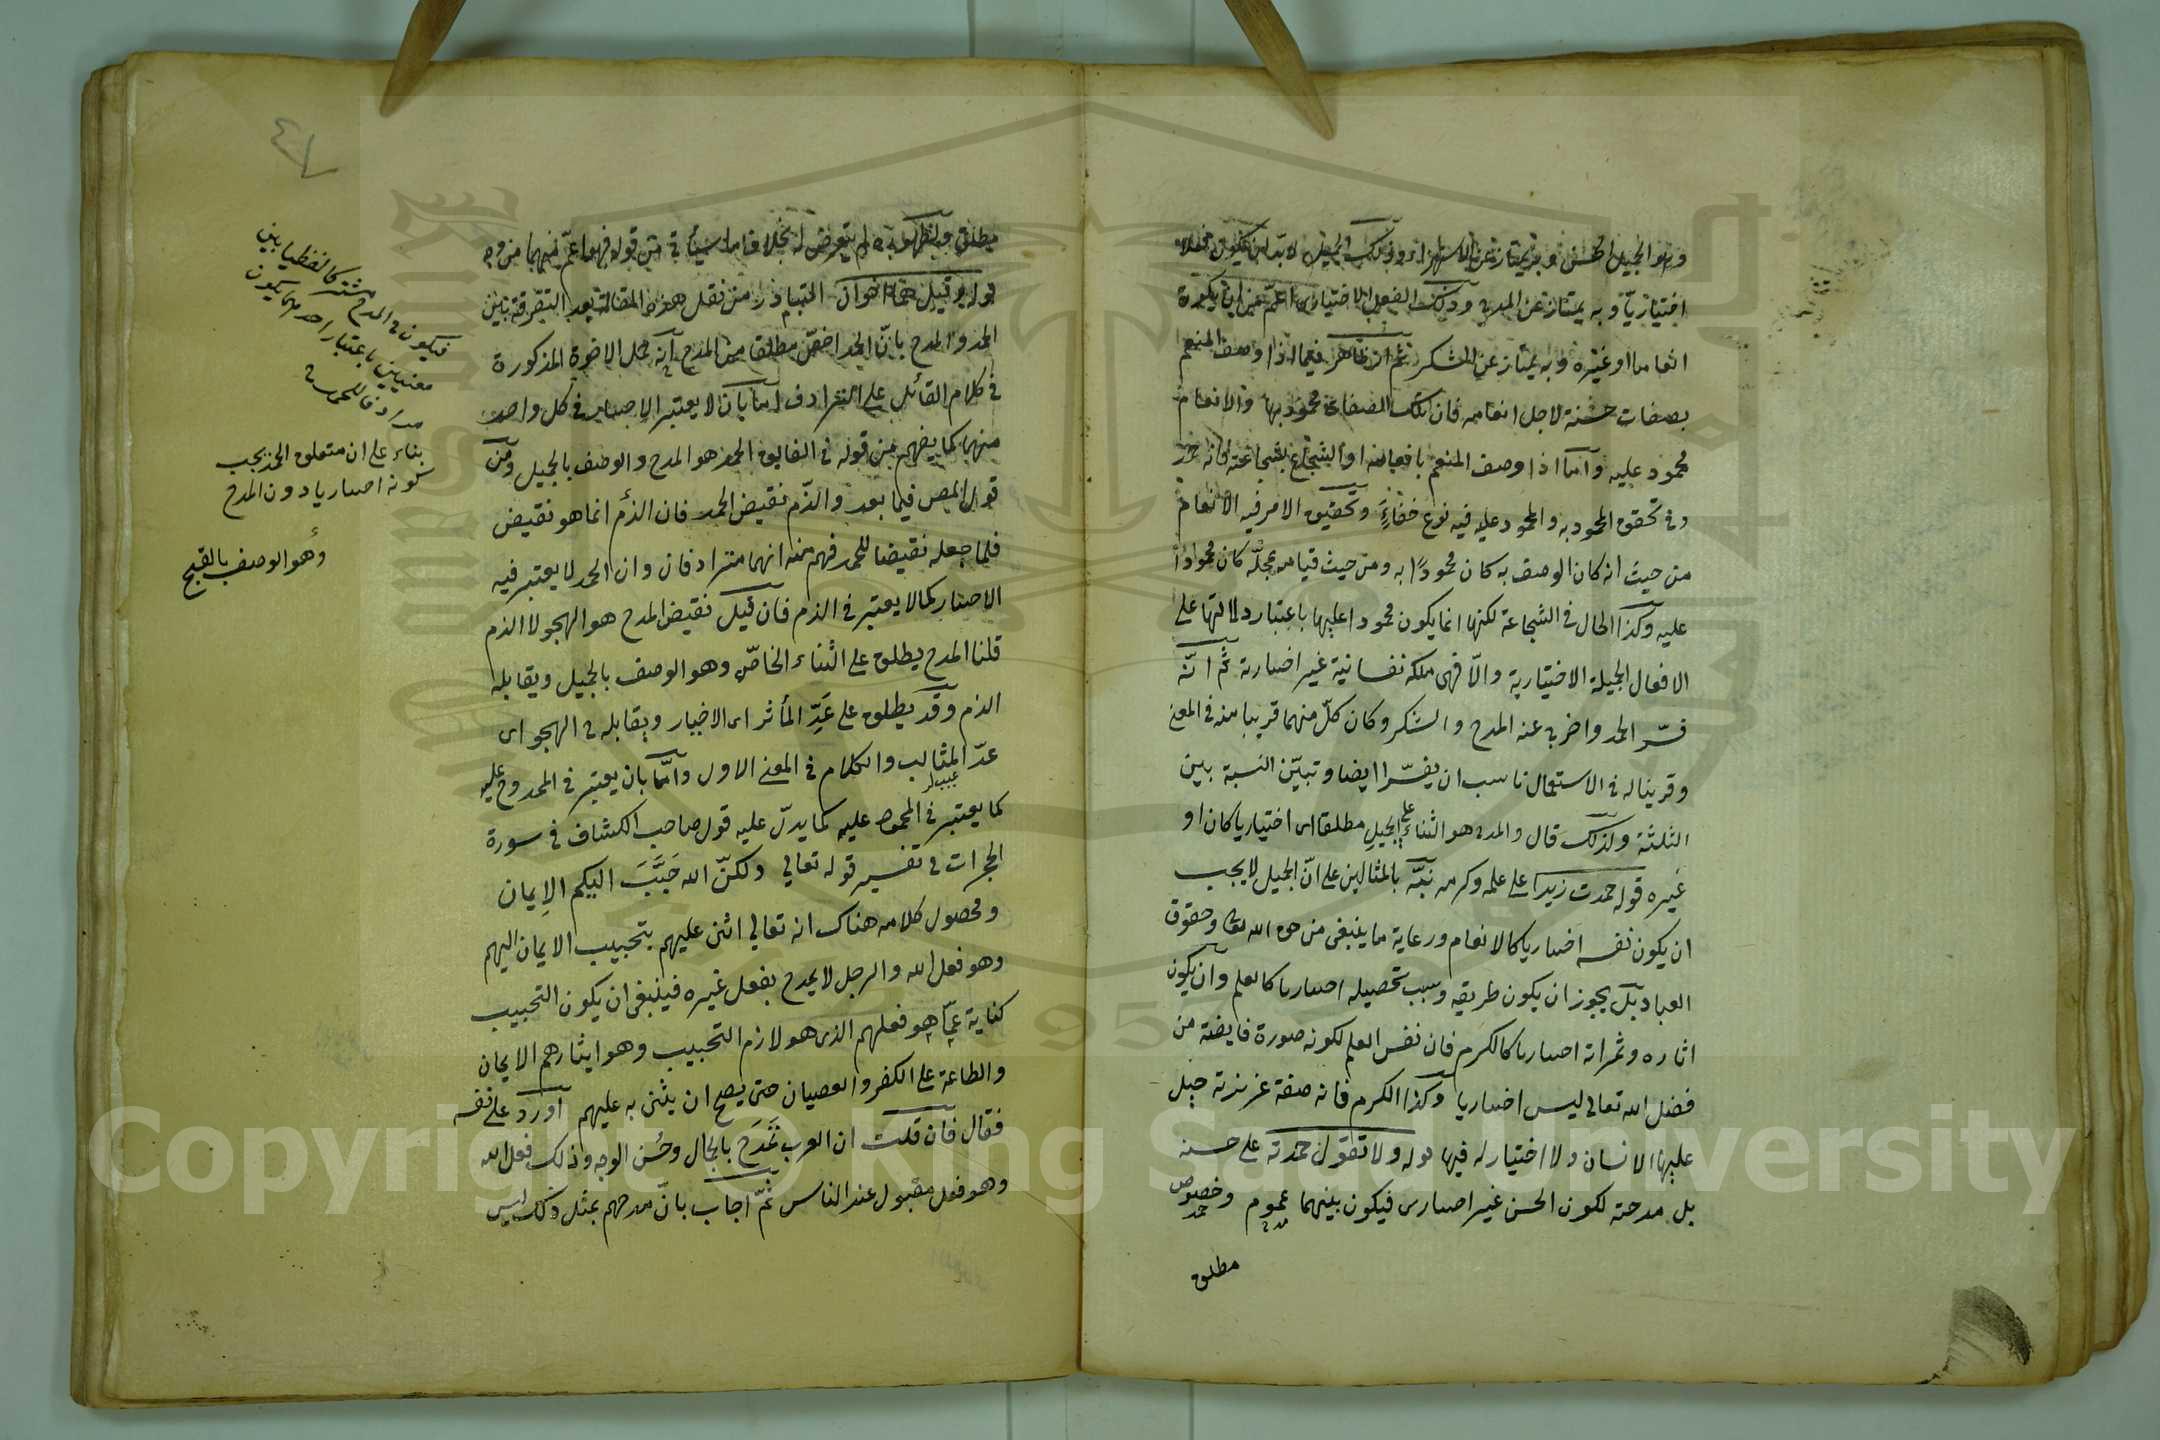 وهو الجميل الحسن وبه يمتاز عن الاستهزاء وذلك الجميل لا بد ان يكون فعلا
اختياريا وبه يمتاز عن المدح وذلك الفعل الاختيارى اعم من ان يكون
انعاما او غيره وبه يمتاز عن الشكر ثم ان الظاهر فيما اذا وصف المنعم
بصفات حسنة لاجل انعامه فان تلك الصفات محمود بها والانعام
محمود عليه واما اذا وصف المنعم بافعاله او الشجاع بشجاعته فانه
وفى تحقق المحمود به والمحمود عليه فيه نوع خفاء وتحقيق الامر فيه الانعام
من حيث انه كان الوصف به كان محمودا به ومن حيث قيامه بمحله كان محمودا
عليه وكذا الحال فى الشجاعة لكنها انما يكون محمودا عليها باعتبار دلالتها على
الافعال الجميلة الاختيارية والا فهى ملكة نفسانية غير اختيارية ثم انه
فسّر الحمد واضرب عنه المدح والشكر وكان كلّ منهما قريبا منه فى المعنى
وقرينا له فى الاستعمال ناسب ان يفسّرا ايضا وتبيّن النسبة بين
الثلثة ولذلك قال والمدح هو الثناء على الجميل مطلقا اى اختياريا كان او
غيره قوله حمدت زيدا على علمه وكرمه نبّه بالمثالين على انّ الجميل لا يجب
ان يكون نفسه اختياريا كالانعام ورعاية ما ينبغى من حق الله تعالى وحقوق
العباد بل يجوز ان يكون طريقه وسبب تحصيله اختياريا كالعلم وان يكون
اثاره وثمراته اختياريا كالكرم فان نفس العلم لكونه صورة فايضة من
فضل الله تعالى ليس اختياريا وكذا الكرم فانه صفة غريزية جبل
عليها الانسان ولا اختيار له فيها قوله ولا تقول حمدته على حسنه
بل مدحته لكون الحسن غير اختيارى فيكون بينهما عموم وخصوص
مدح حمد
مطلق
مطلق ولم يتعرض له قوله فهو اعم منهما من وجه
قوله وقيل هما اخوان المتبادر من نقل هذه المقالة بعد التفرقة بين
الحمد والمدح بانّ الحمد اخصّ مطلقا من المدح انه حمل الاخوة المذكورة
فى كلام القائل على الترادف اما بان لا يعتبر الاختيار فى كل واحد
منهما كما يفهم من قوله فى الفايق الحمد هو المدح والوصف بالجميل ومن
قول المص فيما بعد والذّم نقيض الحمد فان الذّم انما هو نقيض
فلما جعله نقيضا للحمد فهم منه انهما مترادفان وان الحمد لا يعتبر فيه
الاختيار كما لا يعتبر فى الذم فان قيل نقيض المدح هو الهجو لا الذم
قلنا المدح يطلق على الثناء الخاصّ وهو الوصف بالجميل ويقابله
الذم وقد يطلق على عدّ المأثر اى الاخبار ويقابله ح الهجو اى
عدّ المثالب والكلام فى المعنى الاول وامّا بان يعتبر فى الممدوح عليه
كما يعتبر فى المحمود عليه كما يدلّ عليه قول صاحب الكشاف فى سورة
الحجرات فى تفسير قوله تعالى ولكنّ الله حَبَّبَ اليكم الايمان
ومحصول كلامه هناك انه تعالى اثنى عليهم بتحبيب الايمان اليهم
وهو فعل الله والرجل لا يمدح بفعل غيره فينبغى ان يكون التحبيب
كناية عمّا هو فعلهم الذى هو لازم التحبيب وهو ايثارهم الايمان
والطاعة على الكفر والعصيان حتى يصح ان يثنى به عليهم اورد على نفسه
فقال فان قلت ان العرب تمدح بالجمال وحُسن الوجه وذلك فعل الله
وهو فعل مقبول عند الناس ثمّ اجاب بانّ مدحهم بمثل ذلك ليس
فيكون ح المدح مشتركا لفظيا بين
معنيين باعتبار احدهما يكون
مرادفا للحمد
بناء على ان متعلق الحمد يجب
كونه اختياريا دون المدح
وهو الوصف بالقبيح
٤٧
Copyright © King Saud University